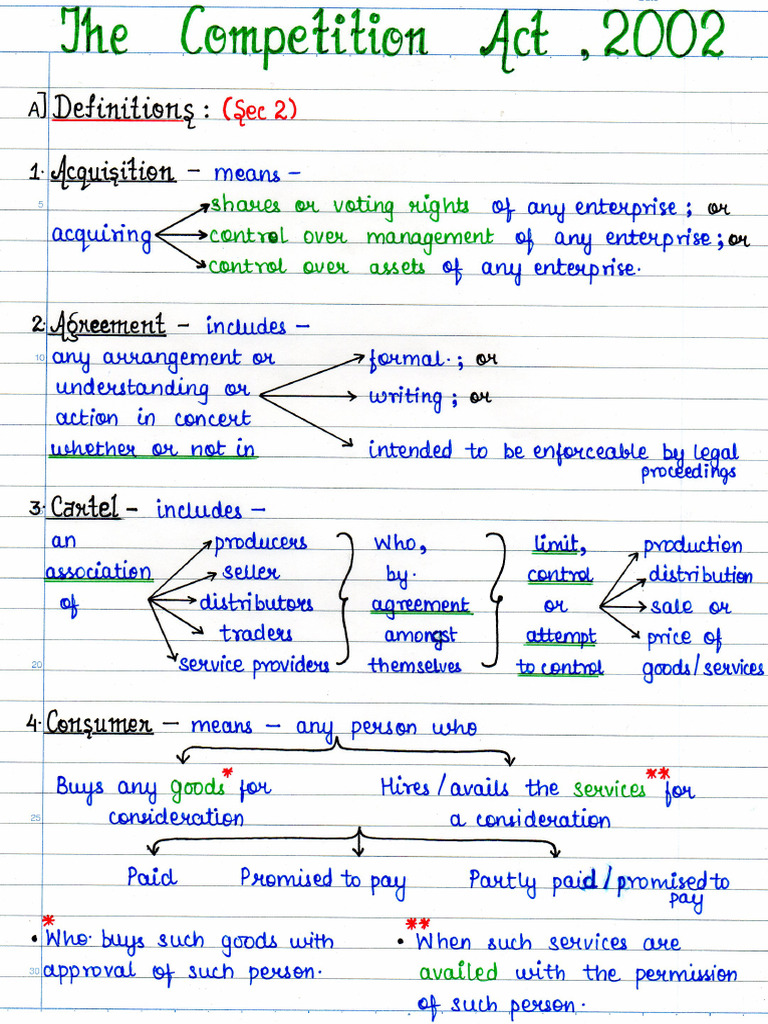 The Competition Act, 2002
A] Definitions : (Sec 2)
1. Acquisition - means -
shares or voting rights of any enterprise ; or
acquiring control over management of any enterprise ; or
control over assets of any enterprise.
2. Agreement - includes -
any arrangement or formal. ; or
understanding or writing ; or
action in concert
whether or not in intended to be enforceable by legal
proceedings
3. Cartel - includes -
an producers Who, limit, production
association seller by. control distribution
of distributors agreement or sale or
traders amongst attempt price of
service providers themselves to control goods/services
4. Consumer - means - any person who
Buys any goods* for Hires/avails the services** for
consideration a consideration
Paid Promised to pay Partly paid/promised to
pay
* **
• Who. buys such goods with • When such services are
approval of such person. availed with the permission
of such person.
5
10
20
25
30